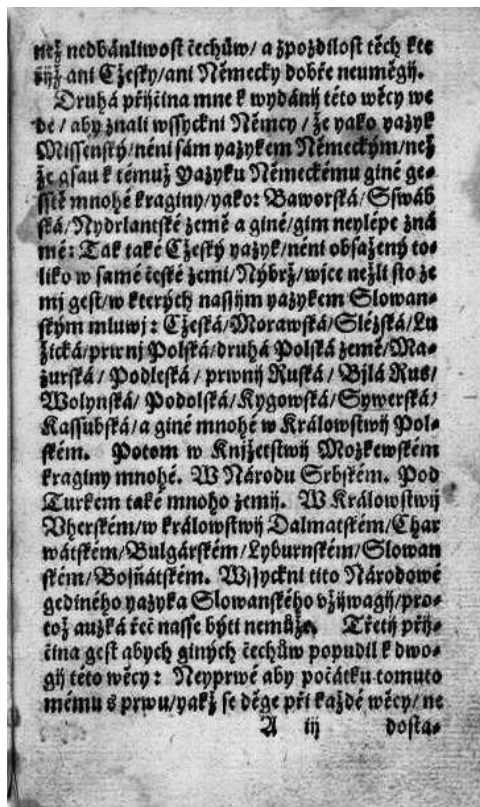 než nedbánliwost čechůw/ a zpozdilost těch kte
řijž ani Cžesky/ani Německy dobře neuměgij.
Druhá přijčina mne k wydánij této wěcy we
de / aby znali wssyckni Němcy / že yako yazyk
Missenský/néni sám yazykem Německým/než
že gsau k témuž Yazyku Německému giné ge-
sstě mnohé kraginy/yako: Baworská/Sswáb
ská/Nydrlantské země a giné/gim neylépe zná
mé: Tak také Cžeský yazyk/néni obsažený to-
liko w samé české zemi/Nýbrž/wjce nežli sto ze
mj gest/w kterých nassijm yazykem Slowan-
ským mluwj: Cžeská/Morawská/Slézská/Lu
žická/prwnj Polská/druhá Polská země/Ma-
zurská / Podleská / prwnij Ruská / Bjlá Rus/
Wolynská/ Podolská/Kygowská/Sywerská/
Kassubská/a giné mnohé w Králowstwij Pol-
ském. Potom w Knijžetstwij Možkewském
kraginy mnohé. W Národu Srbském. Pod
Turkem také mnoho zemij. W Králowstwij
Vherském/w králowstwij Dalmatském/Char
wátském/Bulgárském/Lyburnském/Slowan
ském/Bosňátském. Wssyckni tito Národowé
gediného yazyka Slowanského vžijwagij/pro-
tož auzká řeč nasse býti nemůže. Třetij přij-
čina gest abych giných čechůw popudil k dwo-
gij této wěcy: Neyprwé aby počátku tomuto
mému s prwu/yakž se děge při každé wěcy/ne
A iij dosta-